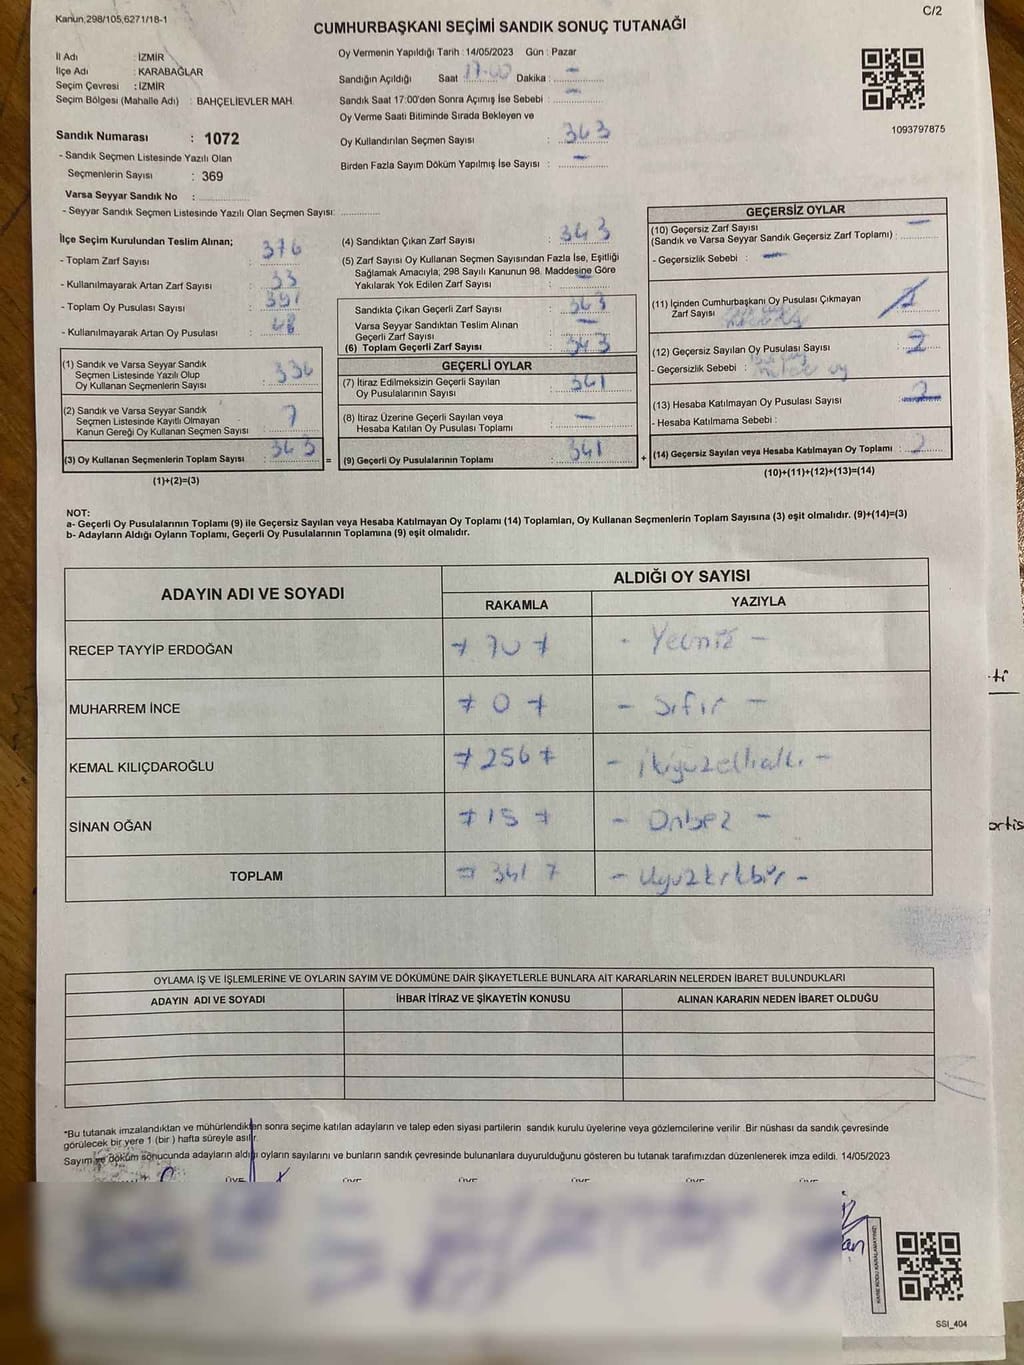 Kanun,298/105,6271/18-1
C/2
CUMHURBAŞKANI SEÇİMİ SANDIK SONUÇ TUTANAĞI
İl Adı : İZMİR
İlçe Adı : KARABAĞLAR
Seçim Çevresi : İZMİR
Seçim Bölgesi (Mahalle Adı) : BAHÇELİEVLER MAH.
Oy Vermenin Yapıldığı Tarih : 14/05/2023 Gün : Pazar
Sandığın Açıldığı Saat 17:00 Dakika : —
Sandık Saat 17:00'den Sonra Açımış İse Sebebi : —
Oy Verme Saati Bitiminde Sırada Bekleyen ve
Oy Kullandırılan Seçmen Sayısı : 363
Birden Fazla Sayım Döküm Yapılmış İse Sayısı : —
1093797875
Sandık Numarası : 1072
- Sandık Seçmen Listesinde Yazılı Olan
Seçmenlerin Sayısı : 369
Varsa Seyyar Sandık No :
- Seyyar Sandık Seçmen Listesinde Yazılı Olan Seçmen Sayısı:
İlçe Seçim Kurulundan Teslim Alınan;
- Toplam Zarf Sayısı : 376
- Kullanılmayarak Artan Zarf Sayısı : 33
- Toplam Oy Pusulası Sayısı : 391
- Kullanılmayarak Artan Oy Pusulası : 48
(1) Sandık ve Varsa Seyyar Sandık
Seçmen Listesinde Yazılı Olup
Oy Kullanan Seçmenlerin Sayısı : 336
(2) Sandık ve Varsa Seyyar Sandık
Seçmen Listesinde Kayıtlı Olmayan
Kanun Gereği Oy Kullanan Seçmen Sayısı : 7
(3) Oy Kullanan Seçmenlerin Toplam Sayısı : 363
(1)+(2)=(3)
(4) Sandıktan Çıkan Zarf Sayısı : 343
(5) Zarf Sayısı Oy Kullanan Seçmen Sayısından Fazla İse, Eşitliği
Sağlamak Amacıyla; 298 Sayılı Kanunun 98. Maddesine Göre
Yakılarak Yok Edilen Zarf Sayısı : —
Sandıkta Çıkan Geçerli Zarf Sayısı : 363
Varsa Seyyar Sandıktan Teslim Alınan
Geçerli Zarf Sayısı : —
(6) Toplam Geçerli Zarf Sayısı : 343
GEÇERLİ OYLAR
(7) İtiraz Edilmeksizin Geçerli Sayılan
Oy Pusulalarının Sayısı : 341
(8) İtiraz Üzerine Geçerli Sayılan veya
Hesaba Katılan Oy Pusulası Toplamı : —
= (9) Geçerli Oy Pusulalarının Toplamı : 341 +
GEÇERSİZ OYLAR
(10) Geçersiz Zarf Sayısı
(Sandık ve Varsa Seyyar Sandık Geçersiz Zarf Toplamı) : —
- Geçersizlik Sebebi : —
(11) İçinden Cumhurbaşkanı Oy Pusulası Çıkmayan
Zarf Sayısı
(12) Geçersiz Sayılan Oy Pusulası Sayısı : 2
- Geçersizlik Sebebi :
(13) Hesaba Katılmayan Oy Pusulası Sayısı : 2
- Hesaba Katılmama Sebebi :
(14) Geçersiz Sayılan veya Hesaba Katılmayan Oy Toplamı : 2
(10)+(11)+(12)+(13)=(14)
NOT:
a- Geçerli Oy Pusulalarının Toplamı (9) ile Geçersiz Sayılan veya Hesaba Katılmayan Oy Toplamı (14) Toplamları, Oy Kullanan Seçmenlerin Toplam Sayısına (3) eşit olmalıdır. (9)+(14)=(3)
b- Adayların Aldığı Oyların Toplamı, Geçerli Oy Pusulalarının Toplamına (9) eşit olmalıdır.
ADAYIN ADI VE SOYADI
ALDIĞI OY SAYISI
RAKAMLA YAZIYLA
RECEP TAYYİP ERDOĞAN 70 - Yetmiş -
MUHARREM İNCE 0 - Sıfır -
KEMAL KILIÇDAROĞLU 256 - ikiyüzellialtı -
SİNAN OĞAN 15 - Onbeş -
TOPLAM = 341 - Üçyüzkırkbir -
OYLAMA İŞ VE İŞLEMLERİNE VE OYLARIN SAYIM VE DÖKÜMÜNE DAİR ŞİKAYETLERLE BUNLARA AİT KARARLARIN NELERDEN İBARET BULUNDUKLARI
ADAYIN ADI VE SOYADI İHBAR İTİRAZ VE ŞİKAYETİN KONUSU ALINAN KARARIN NEDEN İBARET OLDUĞU
*Bu tutanak imzalandıktan ve mühürlendikten sonra seçime katılan adayların ve talep eden siyasi partilerin sandık kurulu üyelerine veya gözlemcilerine verilir .Bir nüshası da sandık çevresinde
görülecek bir yere 1 (bir ) hafta süreyle asılır.
Sayım ve döküm sonucunda adayların aldığı oyların sayılarını ve bunların sandık çevresinde bulunanlara duyurulduğunu gösteren bu tutanak tarafımızdan düzenlenerek imza edildi. 14/05/2023
ÜYE ÜYE ÜYE ÜYE ÜYE ÜYE
KARE KODU KARALAMAYINIZ!
SSI_404